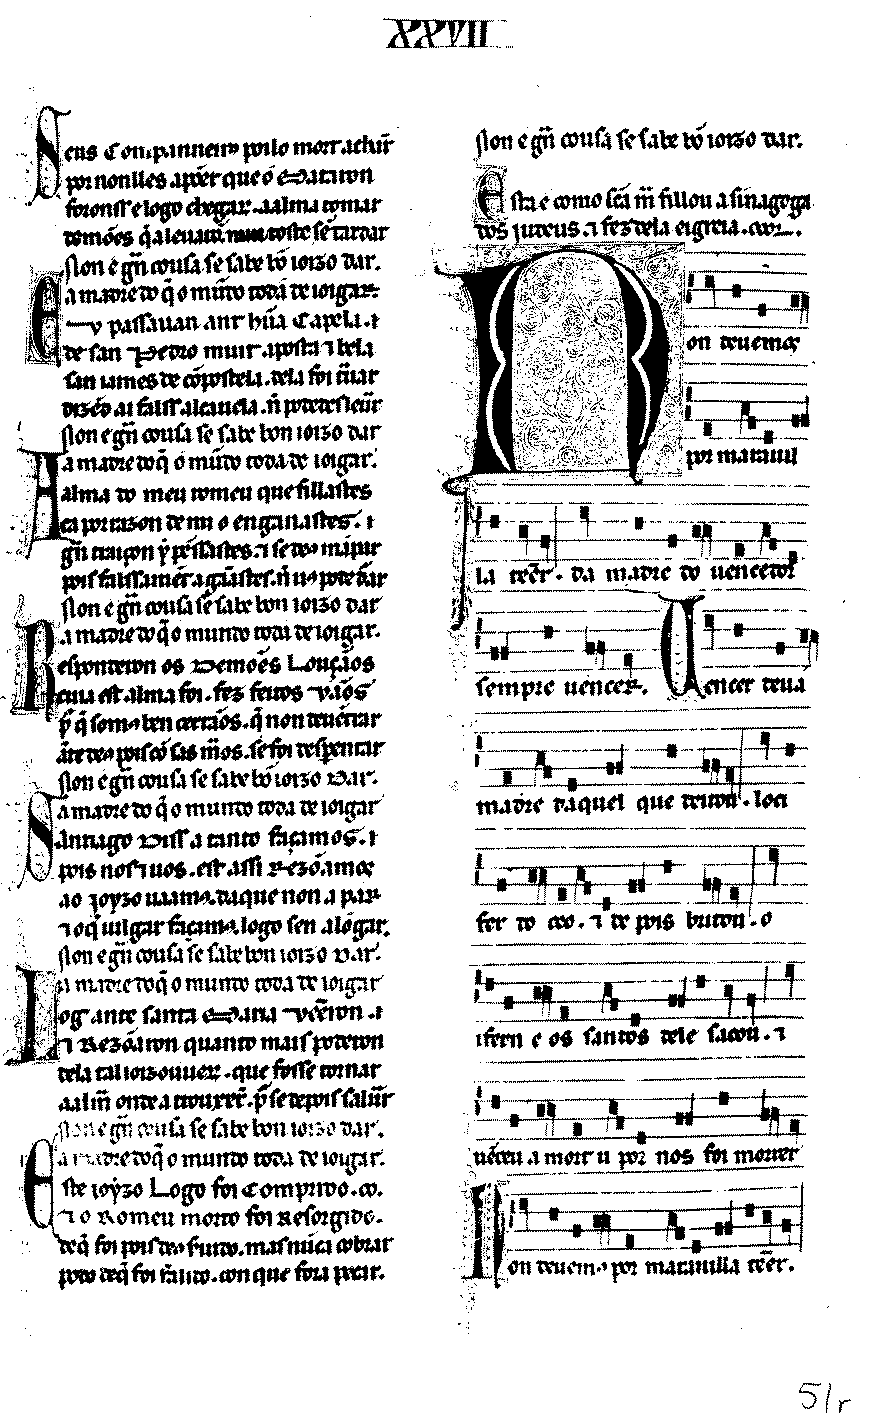 XXVII
Seus Companneiros polo mort achar
por non lles apõer que o mataron
foronss e logo chegar. a alma tomar
demões q̃ a leuarõ toste sẽ tardar
Non é gñ cousa se sabe bõ ioizo dar.
a madre do q̃ o mũdo todã de ioigar.
E u passauan ant hũa Capela. ⁊
de san Pedro muit aposta ⁊ bela
san iames de cõpostela. dela foi
dizẽdo ai falss alcauela. ñ podedes leuar
Non e gñ cousa se sabe bon ioizo dar
a madre doq̃ o mũdo toda de ioigar.
Alma do meu romeu que fillastes
ca por razon de mi o enganastes. ⁊
gñ traiçon y pẽssastes. ⁊ se
pois falss
Non e gñ cousa se sabe bon ioizo dar
a madre do q̃ o mundo toda de ioigar.
Responderon os Demões Louçãos
cuia est alma foi. fez feitos vãos
p̃ q̃ somos ben certãos. q̃ non deuẽ entrar
ante deos pois cõ sas mãos. se foi desperar
Non é gñ cousa se sabe bõ ioizo Dar.
a madre do q̃ o mundo toda de ioigar
Santiago Diss a tanto façamos. ⁊
pois nos ⁊ uos. est assi Rezõamos
ao ioyzo uaamos. da que non a par
⁊ o q̃ iulgar façamos. logo sen alógar.
Non e gñ cousa se sabe bon ioizo Dar.
a madre doq̃ o mundo toda de ioigar
Log ante santa Maria vẽeron. ⁊
⁊ Rezõaron quanto mais poderon
dela tal ioizo ouuer. que fosse tornar
a alm onde a trouxer. p̃ se depois saluar
Non e gñ cousa se sabe bon ioizo dar.
a madre doq̃ o mundo toda de ioigar.
Este ioyzo Logo foi Comprido. co.
⁊ o Romeu morto foi Resorgido.
deq̃ foi pois deos seruido. mas nũca cobrar
podo deq̃ foi falido. con que fora pecar.
Non e gñ cousa se sabe bõ ioizo dar.
Esta e como scã m̃ fillou a sinagoga
dos iudeus. ⁊ fez dela eigreia.
Non deuemos
por marauil
la tẽer. da madre do uencedor
sempre uencer. Uencer deu a
madre daquel que deitou. loci
fer do ceo. ⁊ de pois britou. o
ifern e os santos dele sacou. ⁊
uẽceu a mort u por nos foi morrer
Non deuemos por marauilla tẽer.
51r